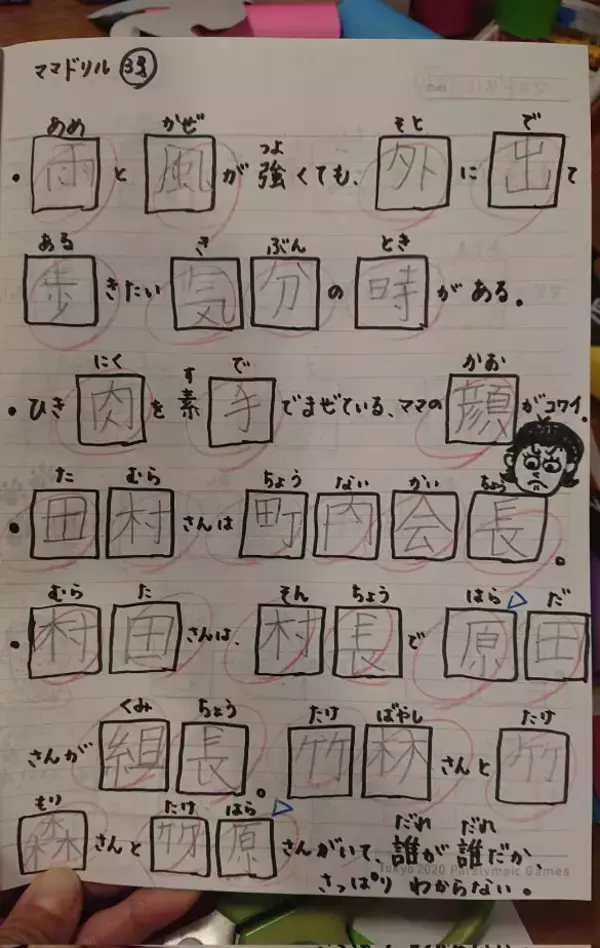 ママドリル 38
あめ かぜ つよ そと で
・雨と風が強くても、外に出て
ある き ぶん とき
歩きたい気分の時がある。
にく す で かお
・ひき肉を素手でまぜている、ママの顔がコワイ。
た むら ちょう ない かい ちょう
・田村さんは町内会長。
むら た そん ちょう はら だ
・村田さんは、村長で原田
くみ ちょう たけ ばやし たけ
さんが組長。竹林さんと竹
もり たけ はら だれ だれ
森さんと竹原さんがいて、誰が誰だか、
さっぱり わからない。
Tokyo 2020 Paralympic Games